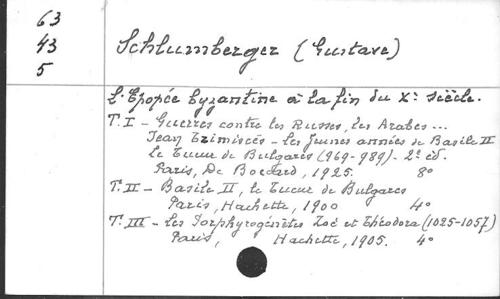 63
43
5
Schlumberger (Gustave)
L'Epopée byzantine à la fin du Xe siècle.
T. I - Guerres contre les Russes, les Arabes ...
Jean Tzimiscès - Les jeunes années de Basile II
le tueur de Bulgares (969-989) - 2e éd.
Paris, De Boccard, 1925. 8o
T. II - Basile II, le tueur de Bulgares
Paris, Hachette, 1900 4o
T. III - Les Porphyrogénètes Zoé et Théodora (1025-1057)
Paris, Hachette, 1905. 4o